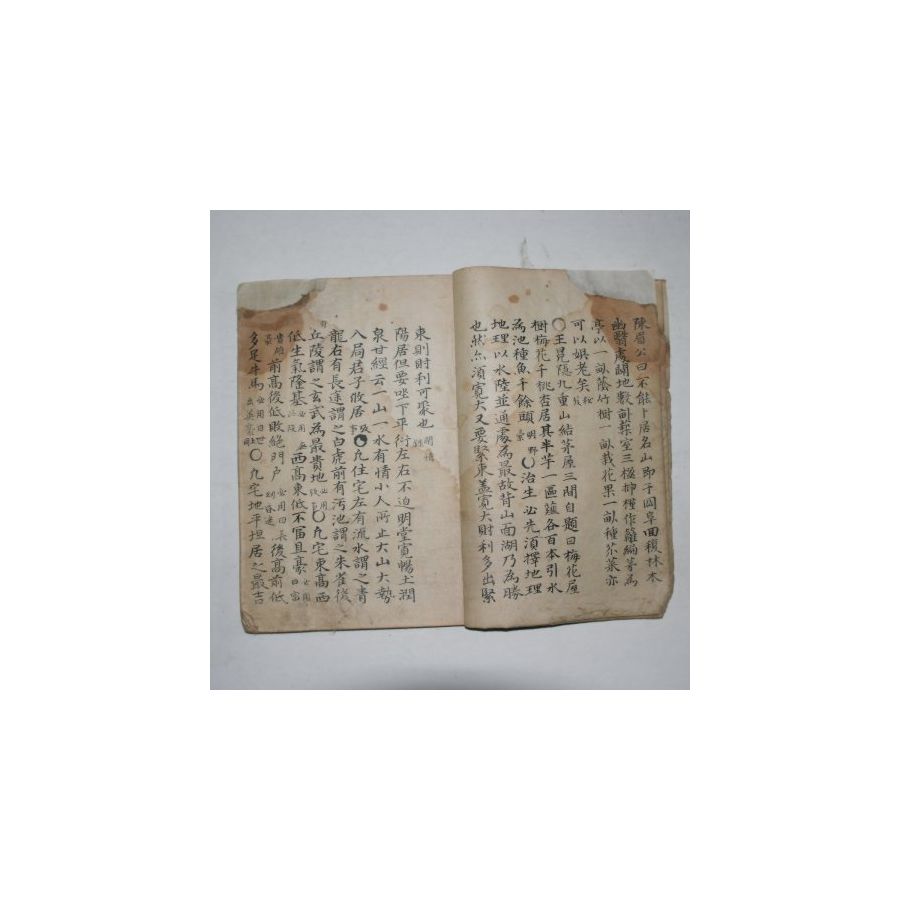 陳眉公曰不能卜居名山即于岡阜回複林木
幽翳處闢地數畝築室三楹揷槿作籬編茅為
亭以一畝蔭竹樹一畝栽花果一畝種苽菜亦
可以娛老矣
〇王冕隐九重山結茅屋三間自題曰梅花屋
樹梅花千桃杏居其半芋一區薤各百本引水
為池種魚千餘頭 〇治生必先湏擇地理
地理以水陸並通處為最故背山面湖乃為勝
也然亦湏寛大又要緊束盖寛大則財利多出緊
束則財利可聚也
陽居但要坐下平衍左右不迫明堂寛暢土潤
泉甘經云一山一水有情小人所止大山大勢
八局君子攸居 凡住宅左有流水謂之青
龍右有長途謂之白虎前有汚池謂之朱雀後
丘陵謂之玄武為最貴地 〇凡宅東高西
低生氣隆基 西高東低不富且豪
前高後低敗絕門户 後高前低
多足牛馬 〇凡宅地平坦居之最吉